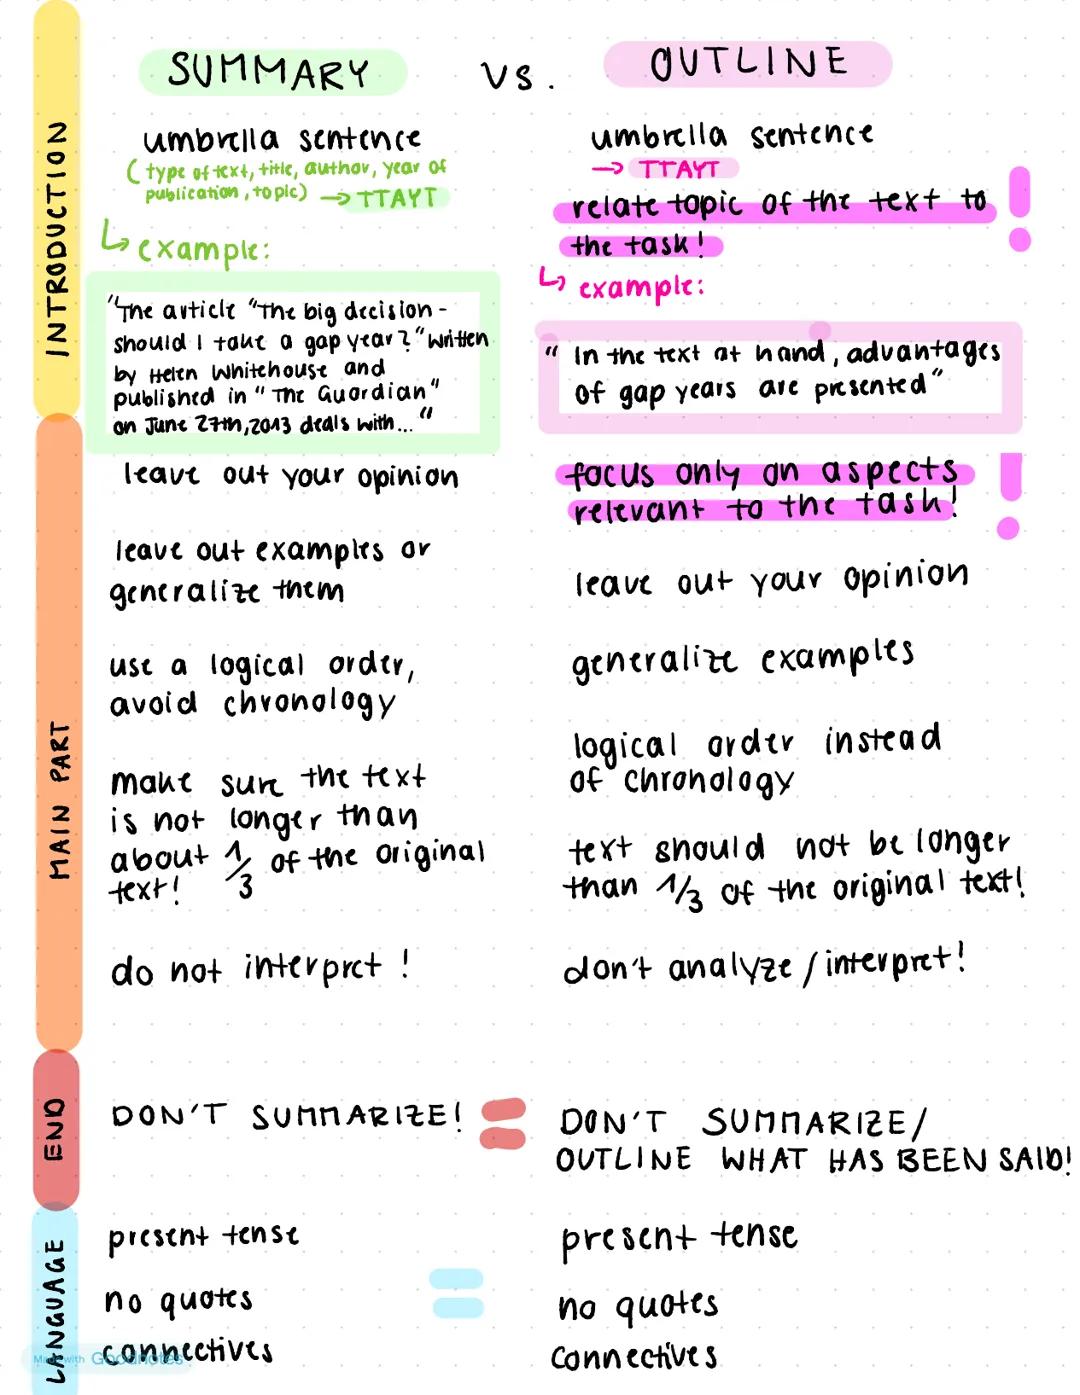 SUMMARY VS. OUTLINE
INTRODUCTION
umbrella sentence
(type of text, title, author, year of
publication, topic) → TTAYT
↳ example:
"The article "The big decision -
should I take a gap year?" written
by Helen Whitehouse and
published in "The Guardian"
on June 27th, 2013 deals with..."
umbrella sentence
→ TTAYT
relate topic of the text to
the task!
!
↳ example:
" In the text at hand, advantages
of gap years are presented"
MAIN PART
leave out your opinion
leave out examples or
generalize them
use a logical order,
avoid chronology
make sure the text
is not longer than
about 1/3 of the original
text!
do not interpret !
focus only on aspects
relevant to the task!
!
leave out your opinion
generalize examples
logical order instead
of chronology
text should not be longer
than 1/3 of the original text!
don't analyze/interpret!
END
DON'T SUMMARIZE! =
DON'T SUMMARIZE/
OUTLINE WHAT HAS BEEN SAID!
LANGUAGE
present tense
no quotes
connectives
=
present tense
no quotes
connectives
Made with Goodnotes